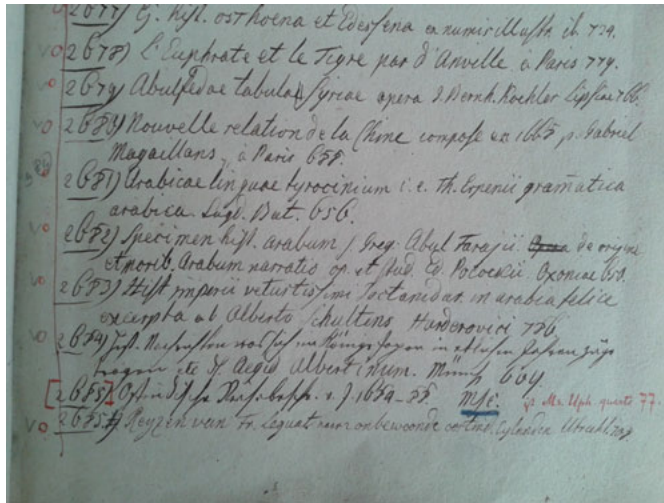 2677) G. hist. osrhoena et Edessena ex numis illustr. ib. 734.
vo 2678) L'Euphrate et le Tigre par d'Anville à Paris 779.
vo 2679) Abulfedae tabula Syriae opera J. Bernh. Koehler Lipsiae 766.
vo 2680) Nouvelle relation de la Chine compose en 1668 p. Gabriel
Magaillans, à Paris 688.
2681) Arabicae linguae tyrocinium i. e. Th. Erpenii gramatica
arabica. Lugd. Bat. 656.
vo 2682) Specimen hist. arabum s Greg. Abul Farajii de origine
et morib. Arabum narratio op. et stud. Ed. Pocockii Oxoniae 650.
vo 2683) Hist imperii vetustissimi Joctanidar. in arabia felice
excerpta ab Alberto Schultens, Harderovici 786.
vo 2684) hist. was sich
etc Aegid Albertinum. Münch 609.
[2685] Ostindische v. J. 1654-
Msc. Ms. Uph. quart. 77.
vo 2685) Reyzen van Fr. Leguat naar onbewoonde eylanden Utrecht